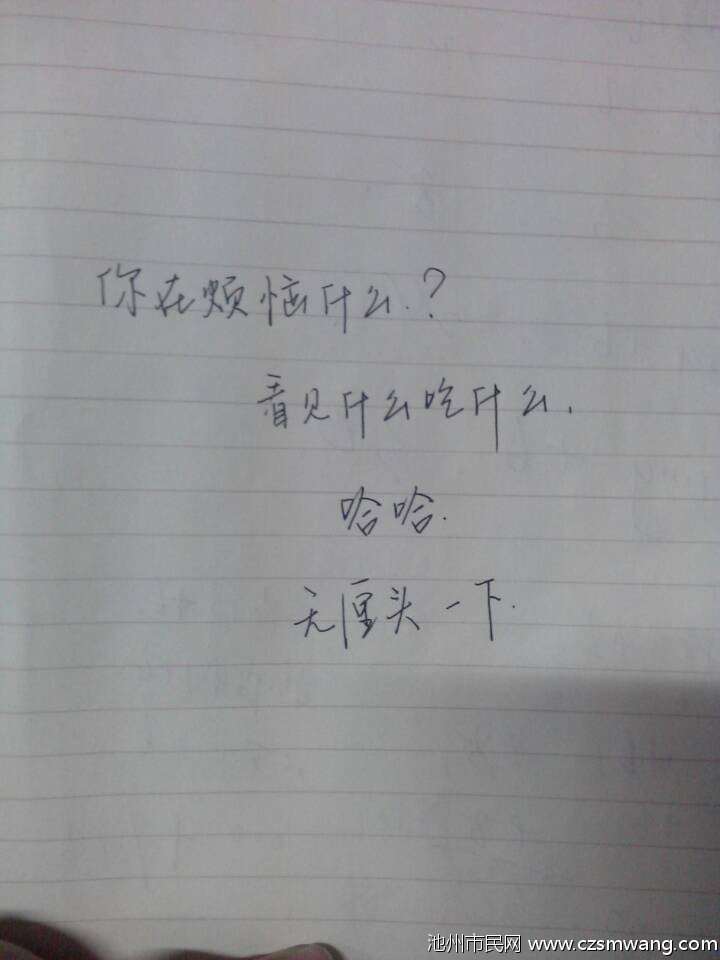 你在烦恼什么.?
看见什么吃什么.
哈哈.
无厘头一下.
池州市民网 www.czsmwang.com